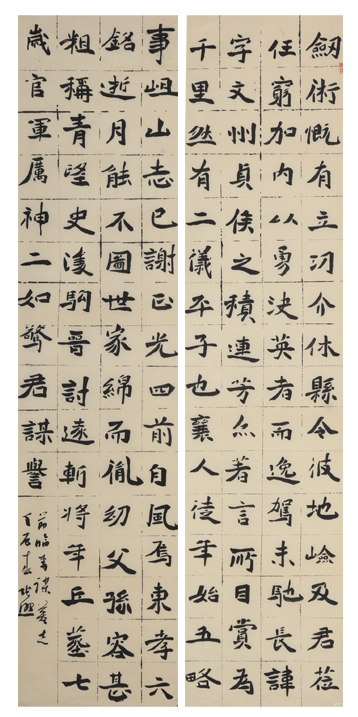 劒術慨有立沏介休縣令彼地嶮及君蒞
任窮加內以勇決英者而逸駕未馳長諱
字文州貞侯之積連芳尒著言所目賞為
千里然有二儀平子也襄人徒年始五略
事岨山志已謝以光四前自風焉東孝六
銘逝月能不圖世家綿而胤幼父孫容甚
粗稱青望史淩駒晉討遠斬將年丘墓七
歲官軍厲神二如驚君謀譽